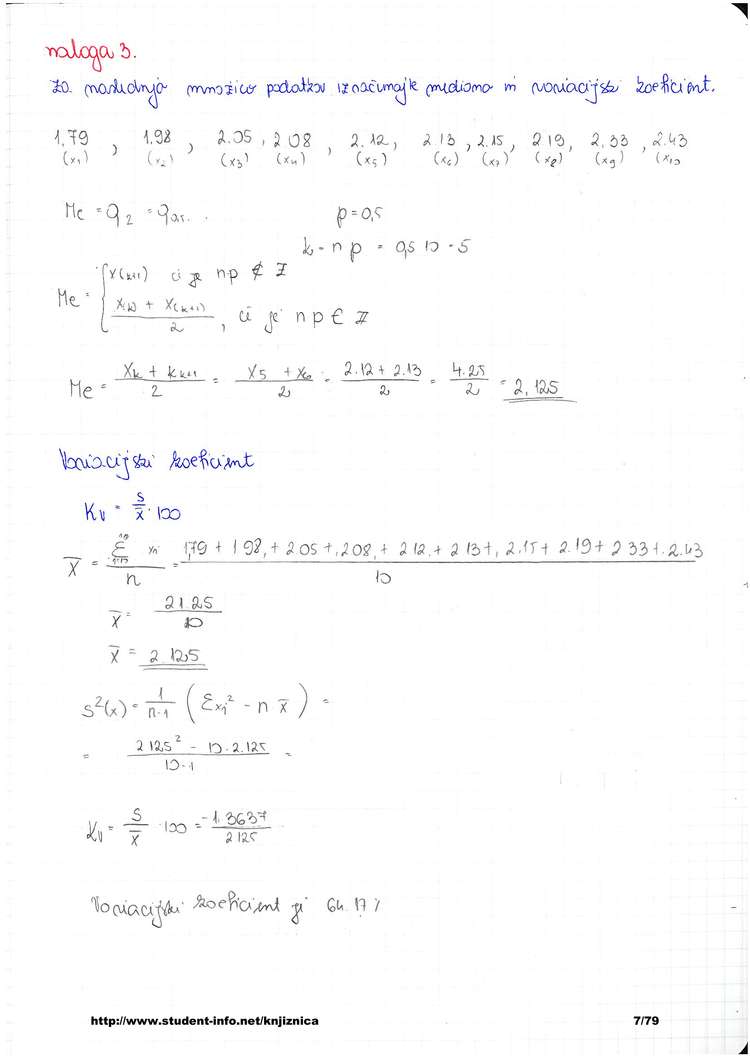 naloga 3.
Za naslednjo množico podatkov izračunajte mediano in variacijski koeficient.
1,79 , 1.98 , 2.05 , 2 08 , 2.12, 2.13 , 2.15 , 2 19 , 2,33 , 2.43
(x1) (x2) (x3) (x4) (x5) (x6) (x7) (x8) (x9) (x10
Me = q2 = q0,5. . p=0,5
k = n p = 0,5 10 = 5
Me = { x(k+1) če je np ∉ Z
x(k) + x(k+1) / 2 , če je np ∈ Z
Me = xk + kk+1 / 2 = x5 + x6 / 2 = 2.12 + 2.13 / 2 = 4.25 / 2 = 2,125
Variacijski koeficient
KV = s/x̄ · 100
x̄ = Σ xi / n = 1,79 + 1 98, + 2 05 +, 208, + 2 12, + 2 13 +, 2.15 + 2.19 + 2 33 +. 2.43 / 10
x̄ = 21.25 / 10
x̄ = 2 125
s²(x) = 1/n-1 ( Σxi² - n x̄ ) =
= 2 125² - 10 · 2.125 / 10 - 1 =
KV = s/x̄ · 100 = -1.3637 / 2 125
Variacijski koeficient je 64.17 %
http://www.student-info.net/knjiznica 7/79